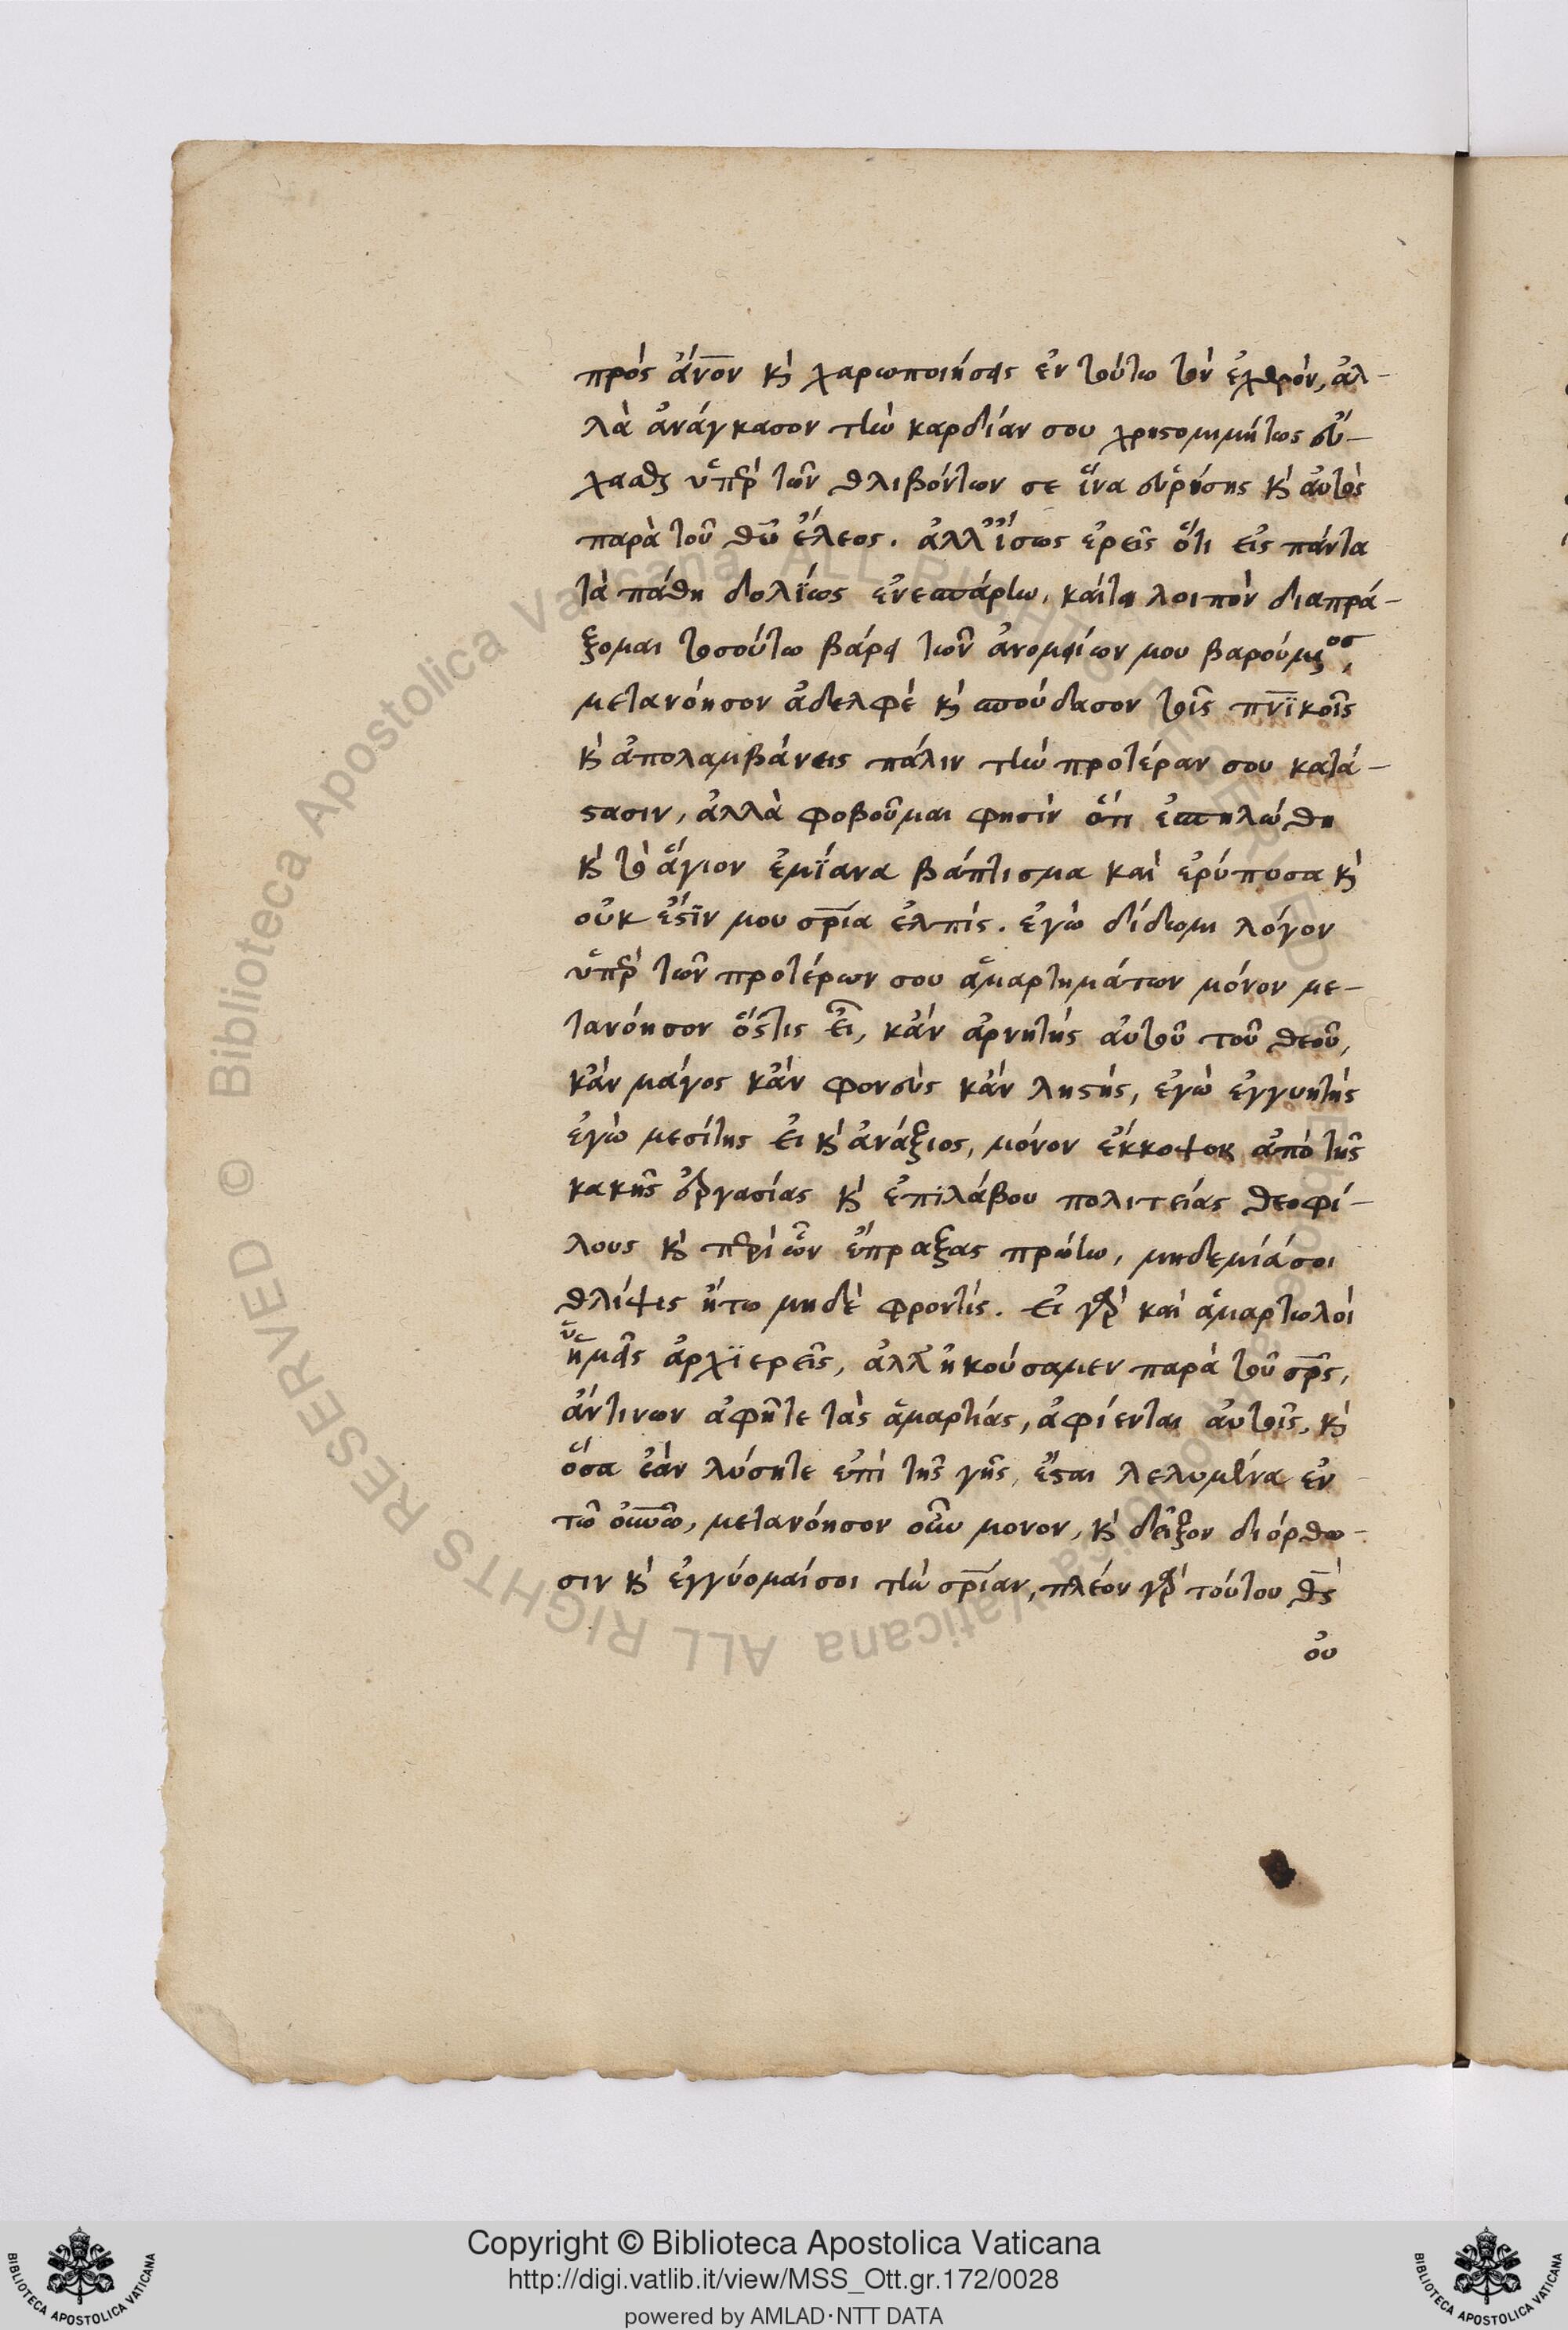 πρὸς ἄν̅ον κ̀ χαρωποιήσας ἐν τούτω τὸν ἐχθρὸν, ἀλ-
λὰ ἀνάγκασον τὴν καρδίαν σου χριστομιμήτως εὔ-
χεσθαι ὑπὲρ τῶν θλιβόντων σε ἵνα εὑρήσης κ̀ αὐτὸς
παρὰ τοῦ θῡ ἔλεος. ἀλλ' ἴσως ἐρεῖς ὅτι εἰς πάντα
τὰ πάθη δολΐως ἐνεσπάρην, καὶ τα λοιπὸν διαπρά-
ξομαι τοσούτω βάρει τῶν ἀνομιῶν μου βαρούμενος,
μετανόησον ἀδελφὲ κ̀ σπούδασον τοῖς πν̅ϊκοῖς
κ̀ ἀπολαμβάνεις πάλιν τὴν προτέραν σου κατά-
στασιν, ἀλλὰ φοβοῦμαι φησὶν ὅτι ἐσπηλώθη
κ̀ τὸ ἅγιον ἐμΐανα βάπτισμα καὶ ἐρύπωσα κ̀
οὐκ ἔστϊν μου σρ̅ία ἐλπίς. ἐγὼ δίδωμι λόγον
ὑπὲρ τῶν προτέρων σου ἁμαρτημάτων μόνον με-
τανόησον ὅστις εἶ, κἂν ἀρνητὴς αὐτοῦ τοῦ θεοῦ,
κἂν μάγος κἂν φονεὺς κἂν ληστὴς, ἐγὼ ἐγγυητὴς
ἐγὼ μεσίτης εἰ κ̀ ἀνάξιος, μόνον ἔκκοψον ἀπὸ τῆς
κακῆς ἐργασίας κ̀ ἐπιλάβου πολιτείας θεοφί-
λους κ̀ περὶ ὧν ἔπραξας πρώτω, μηδεμιά σοι
θλίψις ἤτω μηδὲ φροντίς. εἰ γὰρ καὶ ἁμαρτωλοὶ
ἡμεῖς ἀρχϊερεῖς, ἀλλ' ἠκούσαμεν παρὰ τοῦ σρ̅ς,
ἄντινων ἀφῆτε τὰς ἁμαρτίας, ἀφίενται αὐτοῖς, κ̀
ὅσα ἐὰν λύσητε ἐπὶ τῆς γῆς, ἔσται λελυμένα ἐν
τῶ οὐν̅ῶ, μετανόησον οὖν μονον, κ̀ δεῖξον διόρθω-
σιν κ̀ ἐγγύομαί σοι τὴν σρ̅ίαν, πλέον γὰρ τούτου θ̅ς
οὐ
Copyright © Biblioteca Apostolica Vaticana
http://digi.vatlib.it/view/MSS_Ott.gr.172/0028
powered by AMLAD·NTT DATA